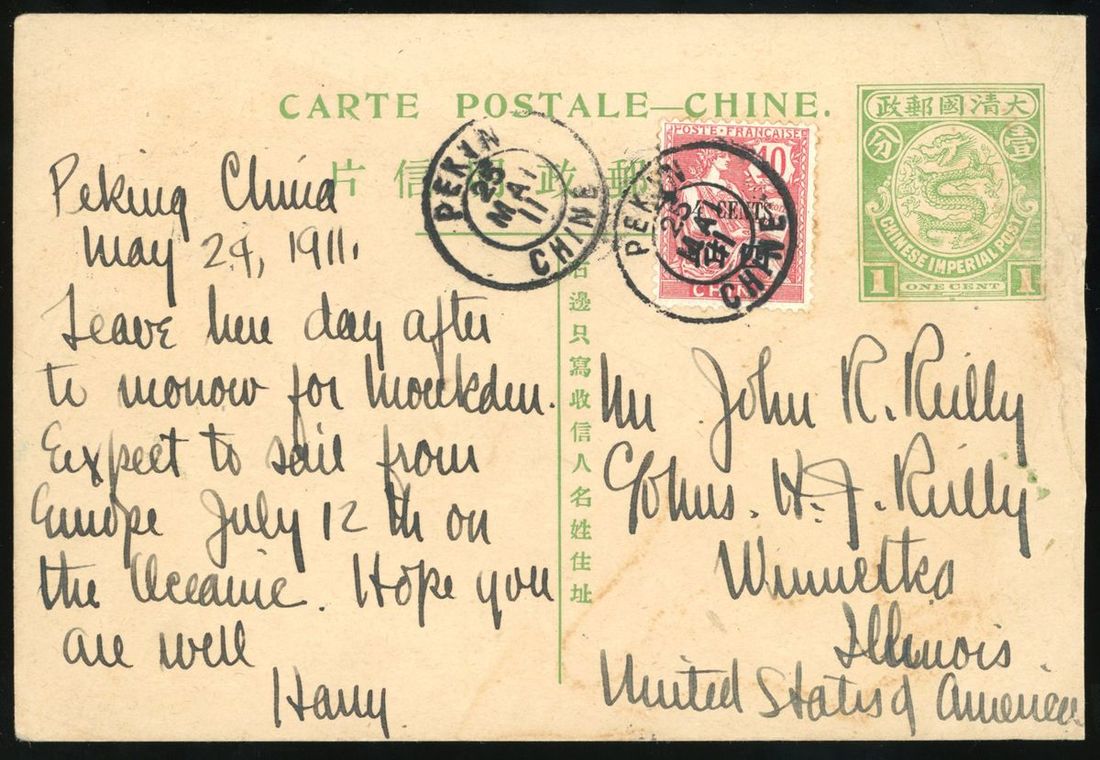 CARTE POSTALE—CHINE.
片信 政郵
大清國郵政
壹分
CHINESE IMPERIAL POST
1 ONE CENT 1
POSTE FRANÇAISE
10
4 CENTS
分四
CHINE
PEKIN
25
MAI
11
CHINE
PEKIN
25
MAI
11
CHINE
右邊只寫收信人名姓住址
Peking China
May 24, 1911.
Leave here day after
to morrow for Moukden.
Expect to sail from
Europe July 12 th on
the Oceanic. Hope you
are well
Harry
Mr John R. Reilly
C/o Mrs. H. J. Reilly
Winnetka
Illinois
United States of America